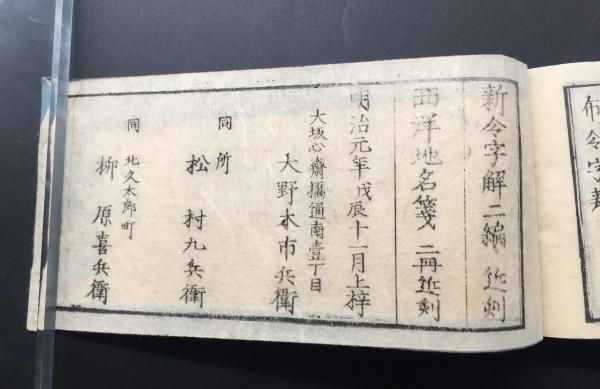 新令字解二編 近刻
西洋地名箋 二冊近刻
明治元年戊辰十一月上梓
大坂心齋橋通南壹丁目
大野木市兵衛
同所
松村九兵衛
同 北久太郎町
柳原喜兵衛